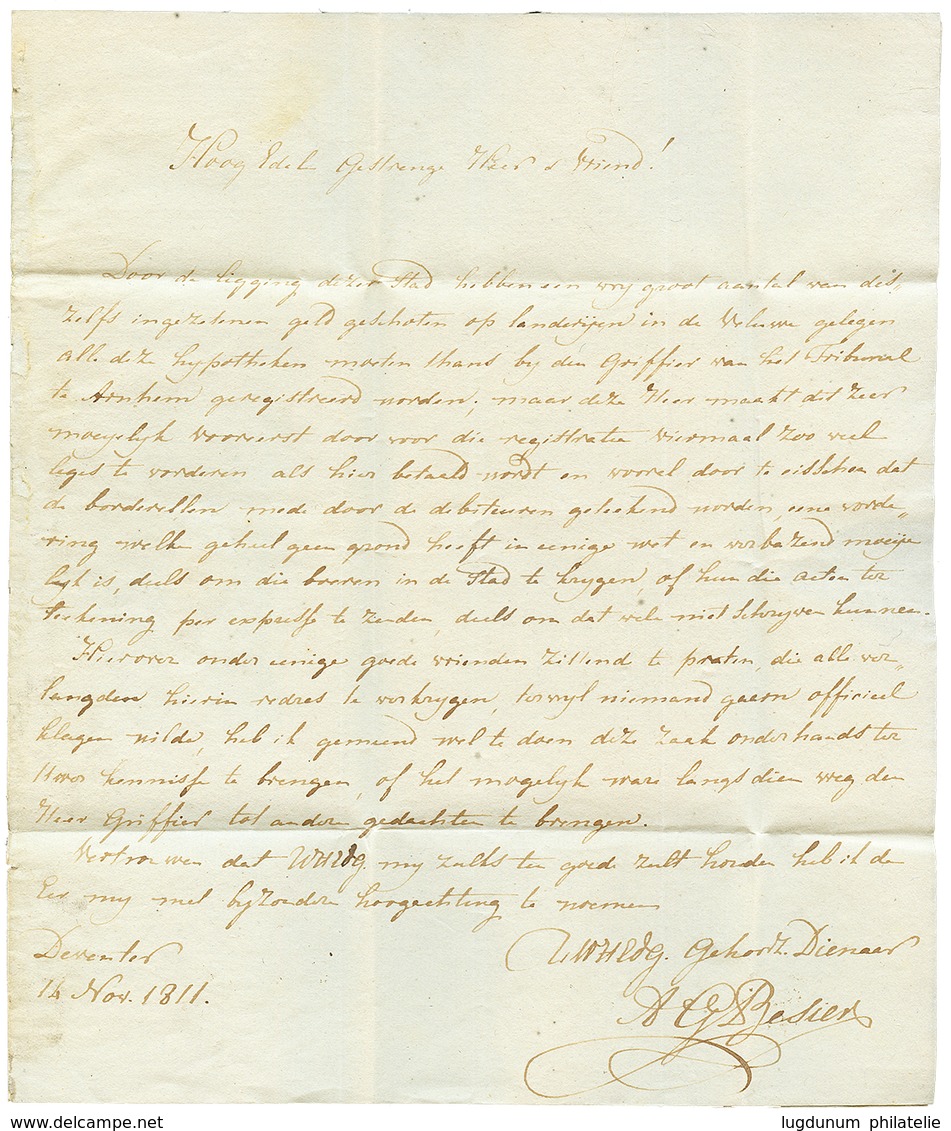 Hoog Edel Gestrenge Heer & Vriend!
Door de ligging dezer Stad hebben een vrij groot aantal van des„
zelfs ingezetenen geld geschoten op landerijen in de Veluwe gelegen
alle deze hypotheken moeten thans by den Griffier van het Tribunal
te Arnhem geregistreerd worden; maar deze Heer maakt dit zeer
moeyelyk vooreerst door voor die registratie viermaal zoo veel
leges te vorderen als hier betaald wordt en vooral door te eisschen dat
de borderellen mede door de debiteuren getekend worden, eene vorde„
ring welke geheel geen grond heeft in eenige wet en verbazend moeije
lyk is, deels om die boeren in de Stad te krygen, of hun die acten ter
tekening per expresse te zenden, deels om dat vele niet schryven kunnen.
Hierover onder eenige goede vrienden zittend te praten, die alle ver„
langden hierin redres te verkrygen, terwyl niemand gaarn officieel
klagen wilde, heb ik gemeend wel te doen deze zaak onderhands ter
Uwer kennisse te brengen, of het mogelyk ware langs dien weg den
Heer Griffier tot andere gedachten te brengen.
Vertrouwen dat UWHEdG. my zulks ten goede zult houden heb ik de
Eer my met byzondere hoogachting te noemen
Deventer
14 Nov. 1811.
UWHEdG. Gehorz. Dienaar
A G Besier
www.delcampe.net
lugdunum philatelie